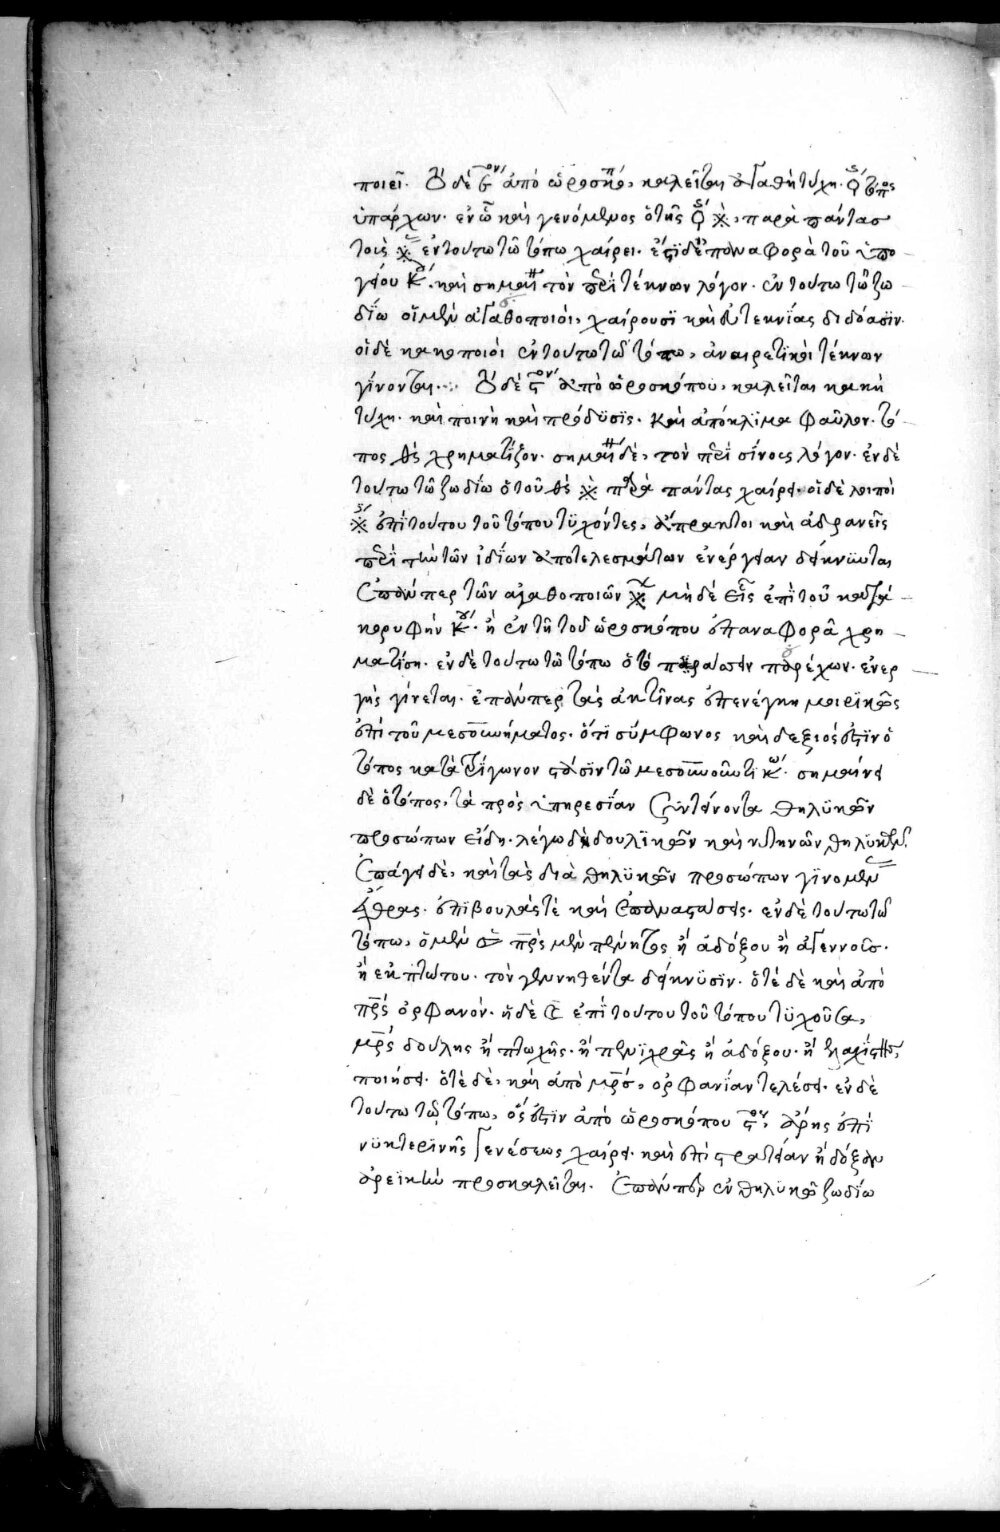 ποιεῖ. Τὸ δὲ ε^ον ἀπὸ ὡροσκόπου, καλεῖται ἀγαθὴ τύχη. ♀ς τόπος
ὑπάρχων. ἐν ὧ καὶ γενόμενος ὁ τῆς ♀ς ※, παρὰ πάντας
τοὺς ※ ἐν τούτω τῶ τόπω χαίρει. ἔστι δὲ ἐπαναφορὰ τοῦ ὑπο
γείου κ. καὶ σημαίνει τὸν περὶ τέκνων λόγον. ἐν τούτω τῶ ζω
δίω οἱ μὲν ἀγαθοποιοὶ, χαίρουσι καὶ εὐτεκνίας διδόασιν.
οἱ δὲ κακοποιοὶ ἐν τούτω τῶ τόπω, ἀναιρετικοὶ τέκνων
γίνονται. Τὸ δὲ ϛ^ον ἀπὸ ὡροσκόπου, καλεῖται κακὴ
τύχη. καὶ ποινὴ καὶ πρόδυσις. καὶ ἀπόκλιμα φαῦλον. τό
πος χρηματίζον. σημαίνει δὲ, τὸν περὶ σίνους λόγον. ἐν δὲ
τούτω τῶ ζωδίω ὁ τοῦ ※ παρὰ πάντας χαίρει. οἱ δὲ λοιποὶ
※ ἐπὶ τούτου τοῦ τόπου τυχόντες, ἄπρακτοι καὶ ἀδρανεῖς
περὶ τὴν τῶν ἰδίων ἀποτελεσμάτων ἐνέργειαν δείκνυνται
ἐπὰν περ τῶν ἀγαθοποιῶν ※ μηδὲ εἷς ἐπὶ τοῦ κατὰ
κορυφὴν κ. ἢ ἐν τῆ τοῦ ὡροσκόπου ἐπαναφορᾶ χρη
ματίση. ἐν δὲ τούτω τῶ τόπω παρέχων. ἐνερ
γὴς γίνεται. ἐπὰν περ τὰς ἀκτῖνας ἐπενέγκη μοιρικῶς
ἐπὶ τοῦ μεσουρανήματος. ὅτι σύμφωνος καὶ δεξιός ἐστιν ὁ
τόπος κατὰ τρίγωνον στάσιν τῶ μεσουρανοῦντι κ. σημαίνει
δὲ ὁ τόπος, τὰ πρὸς ὑπηρεσίαν συντείνοντα θηλυκῶν
προσώπων εἴδη. λέγω δὴ δουλικῶν καὶ κτηνῶν θηλυκῶν.
ἐπάγει δὲ, καὶ τὰς διὰ θηλυκῶν προσώπων γινομένας
ἔχθρας. ἐπιβουλάς τε καὶ ἐπαναστάσεις. ἐν δὲ τούτω τῶ
τόπω, ὁ μὲν πρς μὲν πένητος ἢ ἀδόξου ἢ ἀγεννοῦς.
ἢ ἐκπτώτου. τὸν γεννηθέντα δείκνυσιν. ὁτὲ δὲ καὶ ἀπὸ
πρς ὀρφανόν. ἡ δὲ ☾ ἐπὶ τούτου τοῦ τόπου τυχοῦσα,
μρς δούλης ἢ πτωχῆς. ἢ πενιχρᾶς ἢ ἀδόξου. ἢ ἐλαχίστης,
ποιήσει. ὁτὲ δὲ, καὶ ἀπὸ μρς, ὀρφανίαν τελέσει. ἐν δὲ
τούτω τῶ τόπω, ὅς ἐστιν ἀπὸ ὡροσκόπου ϛ^ον, ἄρης ἐπὶ
νυκτερινῆς γενέσεως χαίρει. καὶ ἐπὶ στρατείαν ἢ δόξαν
ἀρεϊκὴν προσκαλεῖται. ἐπὰν περ ἐν θηλυκῶ ζωδίω